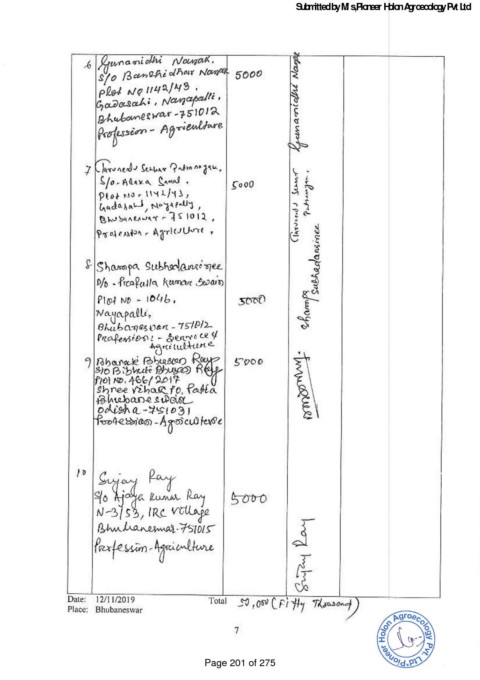 Submitted by M/s, Pioneer Holon Agroecology Pvt Ltd
6 Gunanidhi Nayak.
S/o Banshidhar Nayak 5000
Plot No 1142/43.
Gadasahi, Nayapalli,
Bhubaneswar-751012
Profession - Agriculture
Gunanidhi Nayak
7
S/o-
Plot no-1142/43, 5000
Gadasahi, Nayapally,
Bhubaneswar-751012,
Profession-Agriculture,
8 Shampa Subhadarsinee
D/o - Prafulla Kumar Swain
Plot No - 1046, 5000
Nayapalli,
Bhubaneswar-751012
Profession:- Service &
Agriculture
Shampa
Subhadarsinee
9 Bharati Bhusan Ray 5000
S/o Bibhuti Bhusan Ray
Plot No. 466/2017
Shree Vihar, PO, Patia
Bhubaneswar
Odisha-751031
Profession-Agriculture
10 Sujay Ray
S/o Ajaya Kumar Ray 5000
N-3/53, IRC Village
Bhubaneswar-751015
Profession-Agriculture
Sujay Ray
Date: 12/11/2019 Total 50,000 (Fifty Thousand)
Place: Bhubaneswar
7
Pioneer Holon Agroecology Pvt. Ltd.
Page 201 of 275